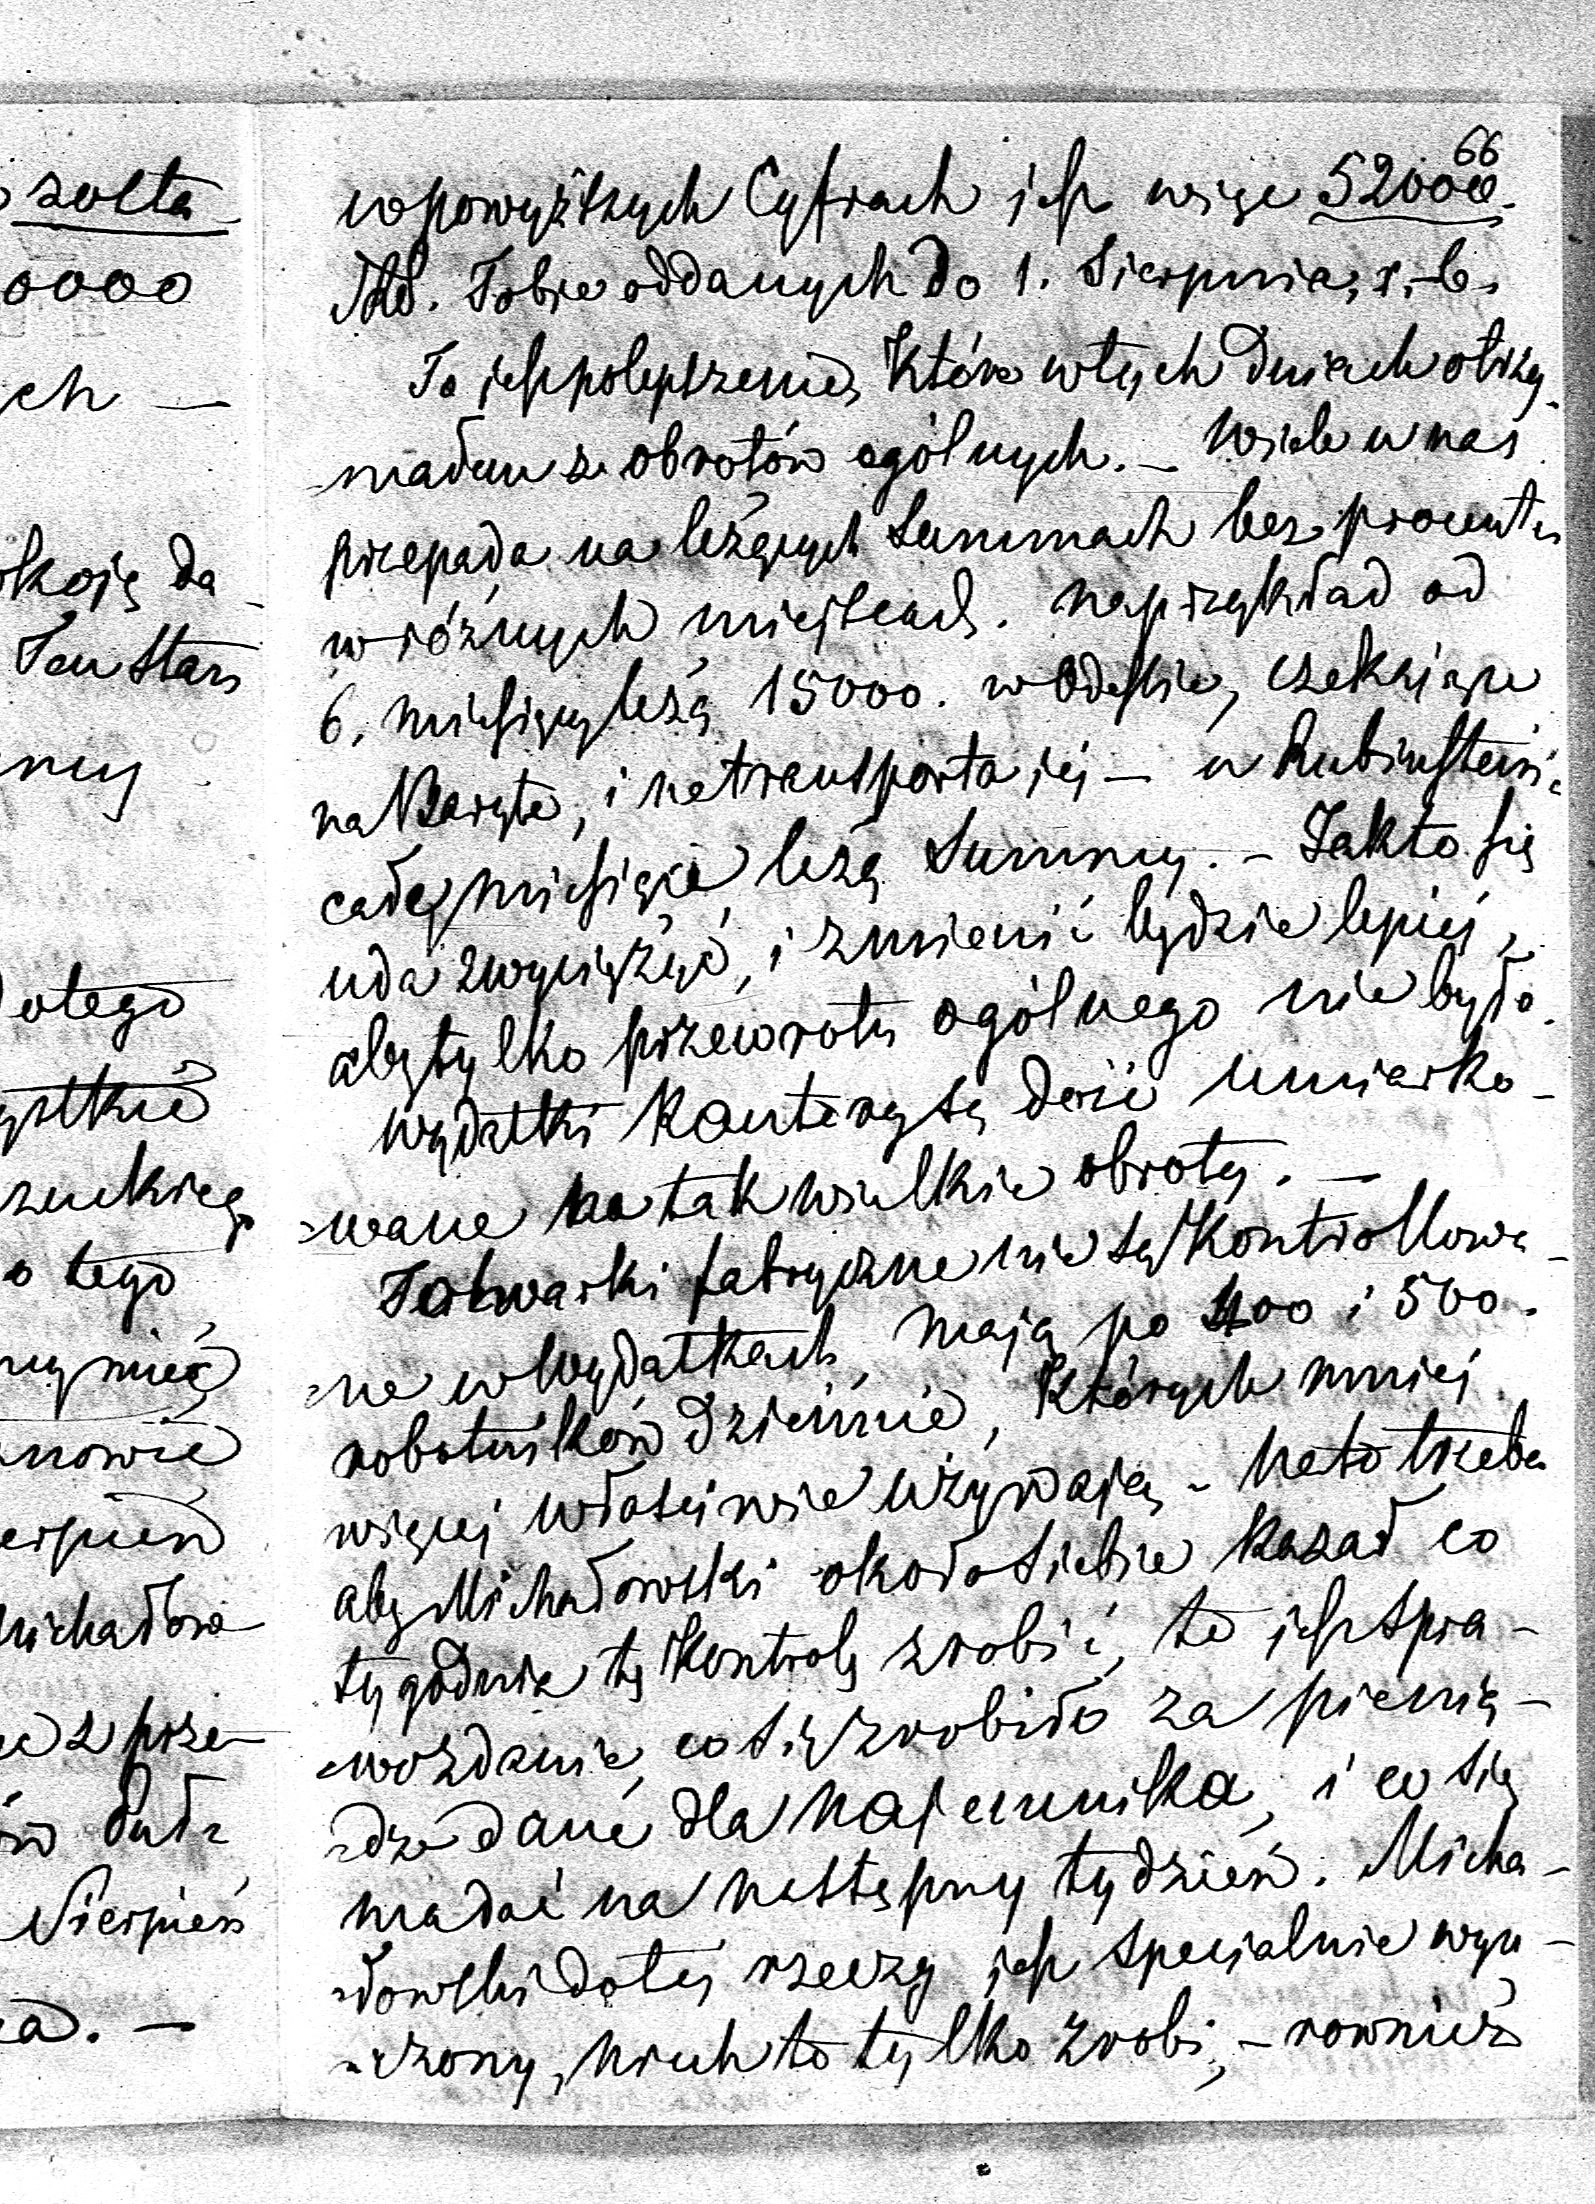 66
w powyższych Cyfrach jest więc 52000.
Rb. Tobie oddanych do 1. Sierpnia, r. b.
To jest polepszenie, które w tych dniach otrzy-
małem z obrotów ogólnych. — Wiele u nas
przepada na leżących Summach bez procentu
w różnych miejscach. naprzykład od
6. miesięcy leżą 15000. w Odessie, czekające
na Barytę, i na transporta jej — u Rubinsteina
całe miesiące leżą Summy. — Jak to się
uda zwyciężyć, i zmienić będzie lepiej,
aby tylko przewrotu ogólnego nie było.
Wydatki Kantoru są dość umiarko-
wane na tak wielkie obroty. —
Folwarki fabryczne nie są Kontrollowa-
ne w wydatkach, mają po 400 i 500.
robotników dziennie, których mniej
więcej właściwie używają — Na to trzeba
aby Michałowski około siebie kazał co
tygodnia tę Kontrolę zrobić, to jest spra-
wozdanie, co się zrobiło za pienią-
dze dane dla najemnika, i co się
ma dać na następny tydzień. Micha-
łowski do tej rzeczy jest specjalnie wyu-
czony, niech to tylko zrobi, — rownież
zolta
0000
ch —
okoję da
Ten Stars
ny
otego
ystkie
szuckiego
o tego
ny mieć
nowie
erpień
Michałow
z prze-
Sierpień
a. —